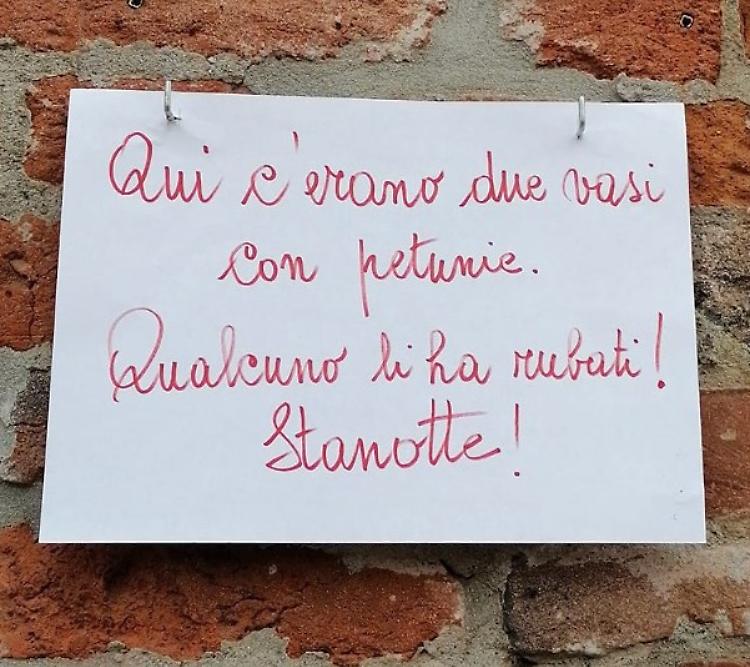 Qui c'erano due vasi
con petunie.
Qualcuno li ha rubati!
Stanotte!